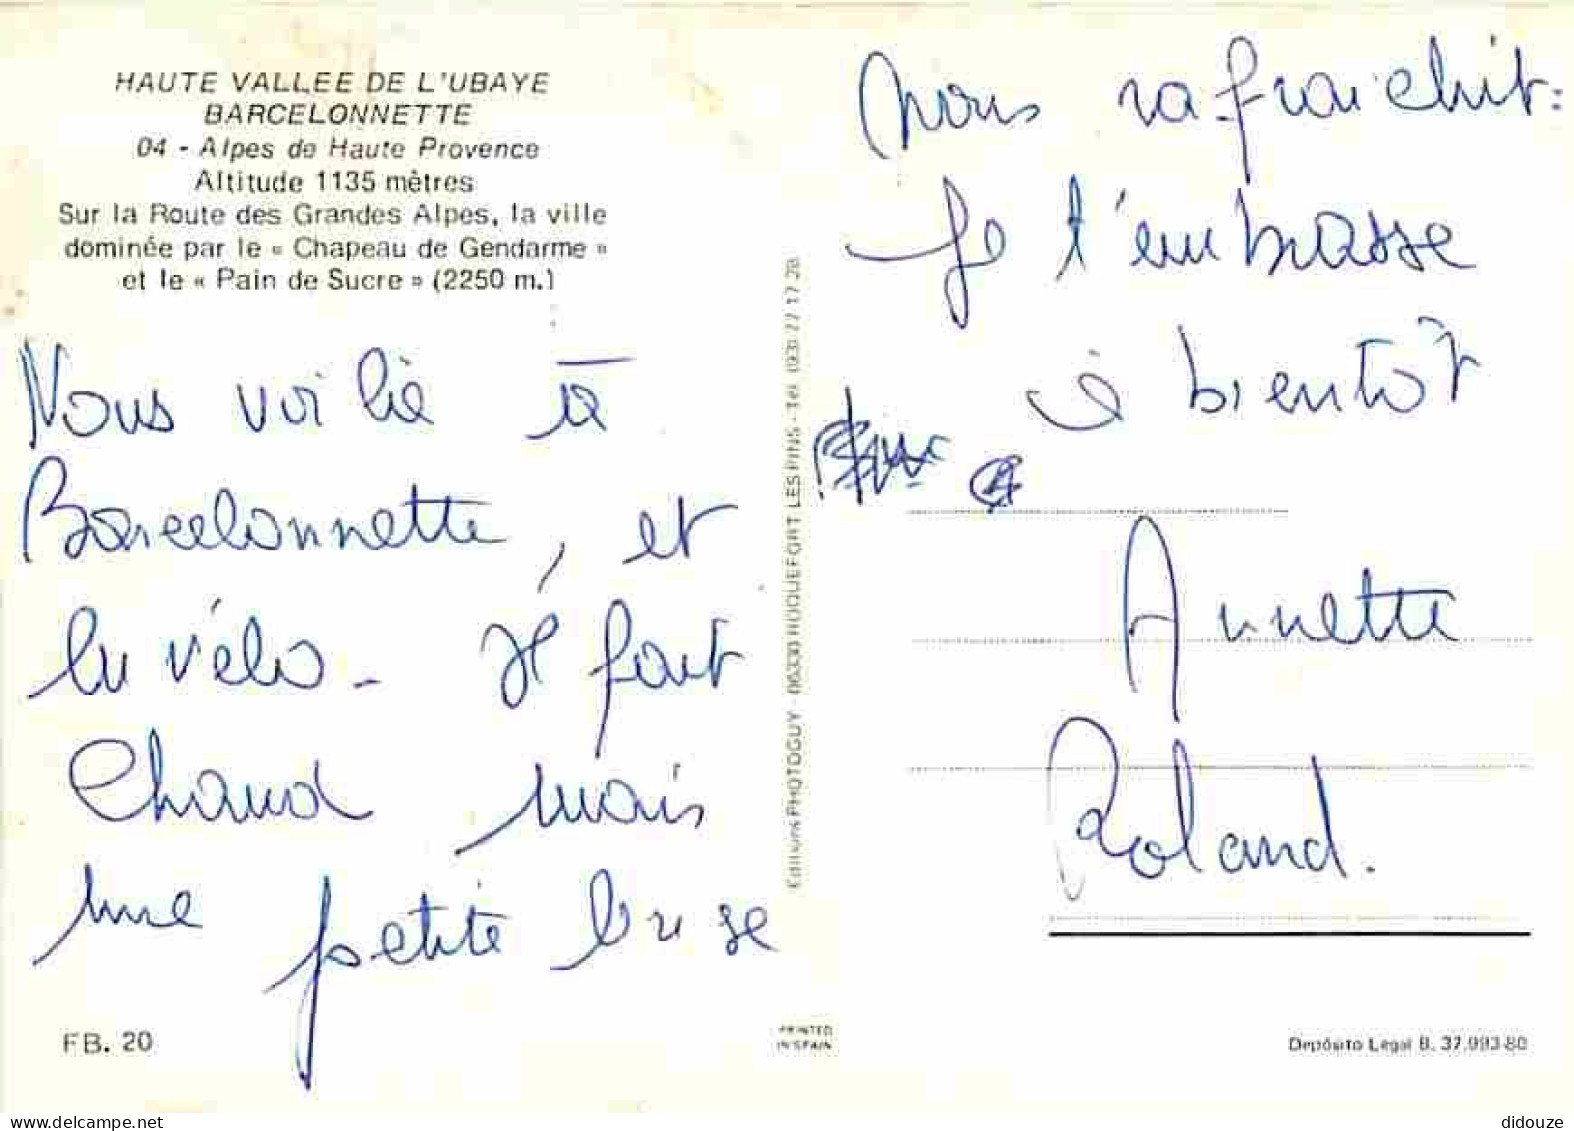 HAUTE VALLEE DE L'UBAYE
BARCELONNETTE
04 - Alpes de Haute Provence
Altitude 1135 mètres
Sur la Route des Grandes Alpes, la ville
dominée par le « Chapeau de Gendarme »
et le « Pain de Sucre » (2250 m.)
Nous voilà à
Barcelonnette, et
en vélo. Il fait
Chaud mais
une petite brise
FB. 20
Editions PHOTOGUY - 06330 ROQUEFORT LES PINS - Tél. (93) 77 17 28
PRINTED
IN SPAIN
nous rafraichit.
Je t'embrasse
à bientôt
Annette
Roland.
Depósito Legal B. 37.993-80
didouze